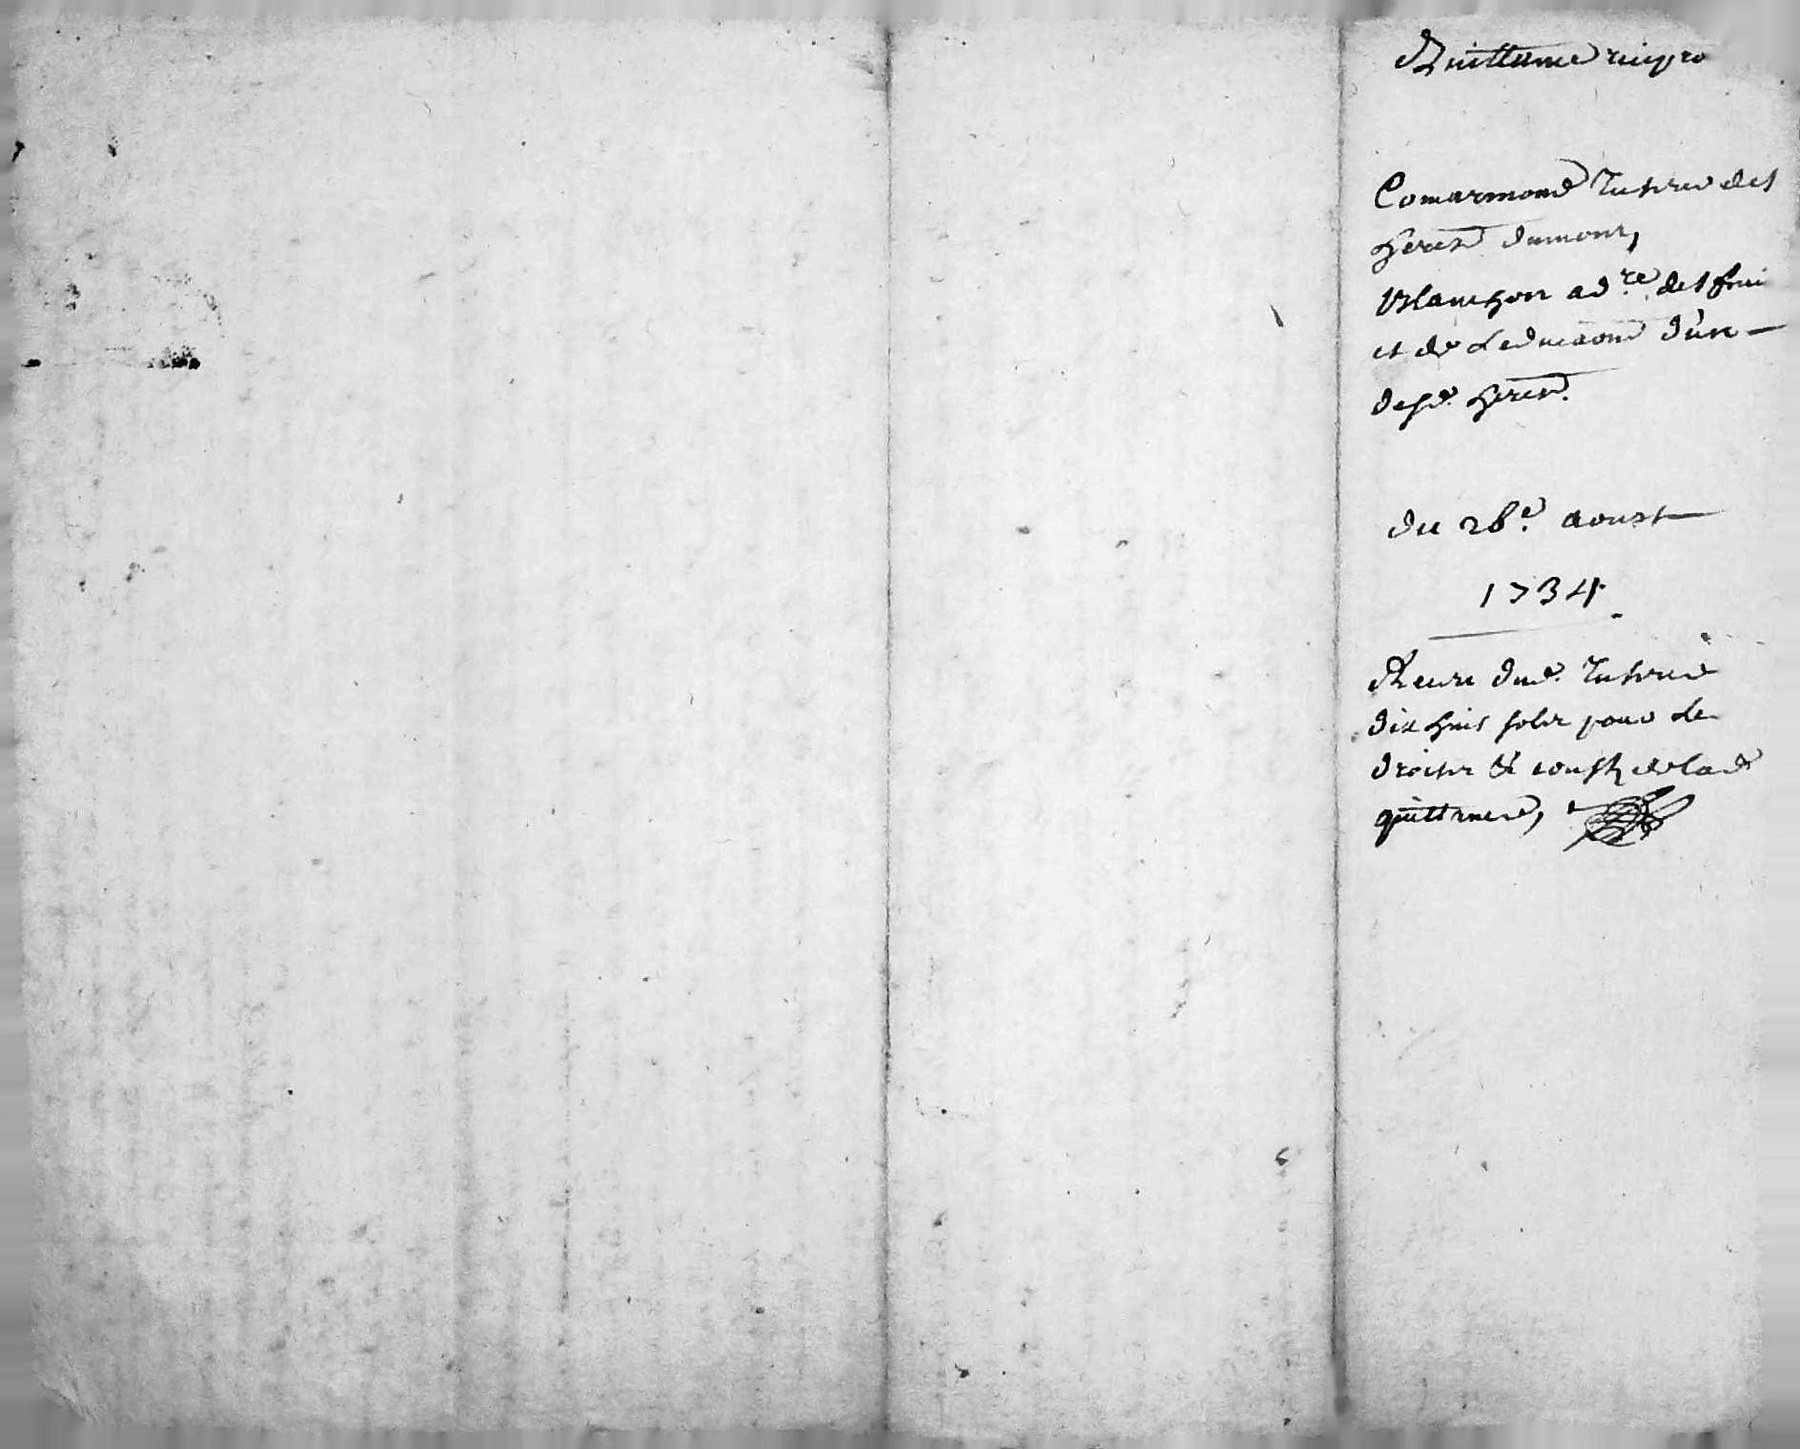 Quittance recipro
Comarmond Tutrice des
heres dumont,
Blanchon ad.re des frui
et de Leducaôn d'un
desd. heres.
du 26.e aoust
1734
Receu dud. Tutrice
dix huit solz pour le
droitz & coust de lad
quittance,